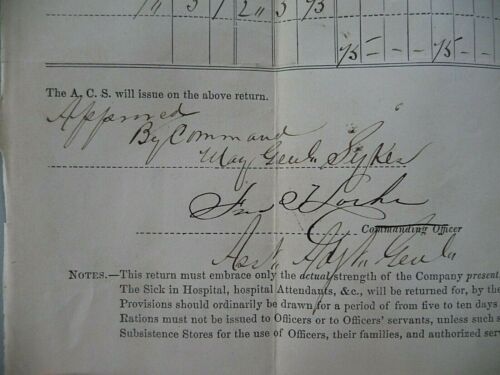 11 3 1 2 11 3 73
75 — — — 75 — —
The A. C. S. will issue on the above return.
Approved
By Command
Maj Genl. Sykes
Fred T Locke
Commanding Officer
Asst. Adjt. Genl.
NOTES.—This return must embrace only the actual strength of the Company present.
The Sick in Hospital, hospital Attendants, &c., will be returned for, by
Provisions should ordinarily be drawn for a period of from five to ten days
Rations must not be issued to Officers or to Officers' servants, unless such s
Subsistence Stores for the use of Officers, their families, and authorized serv